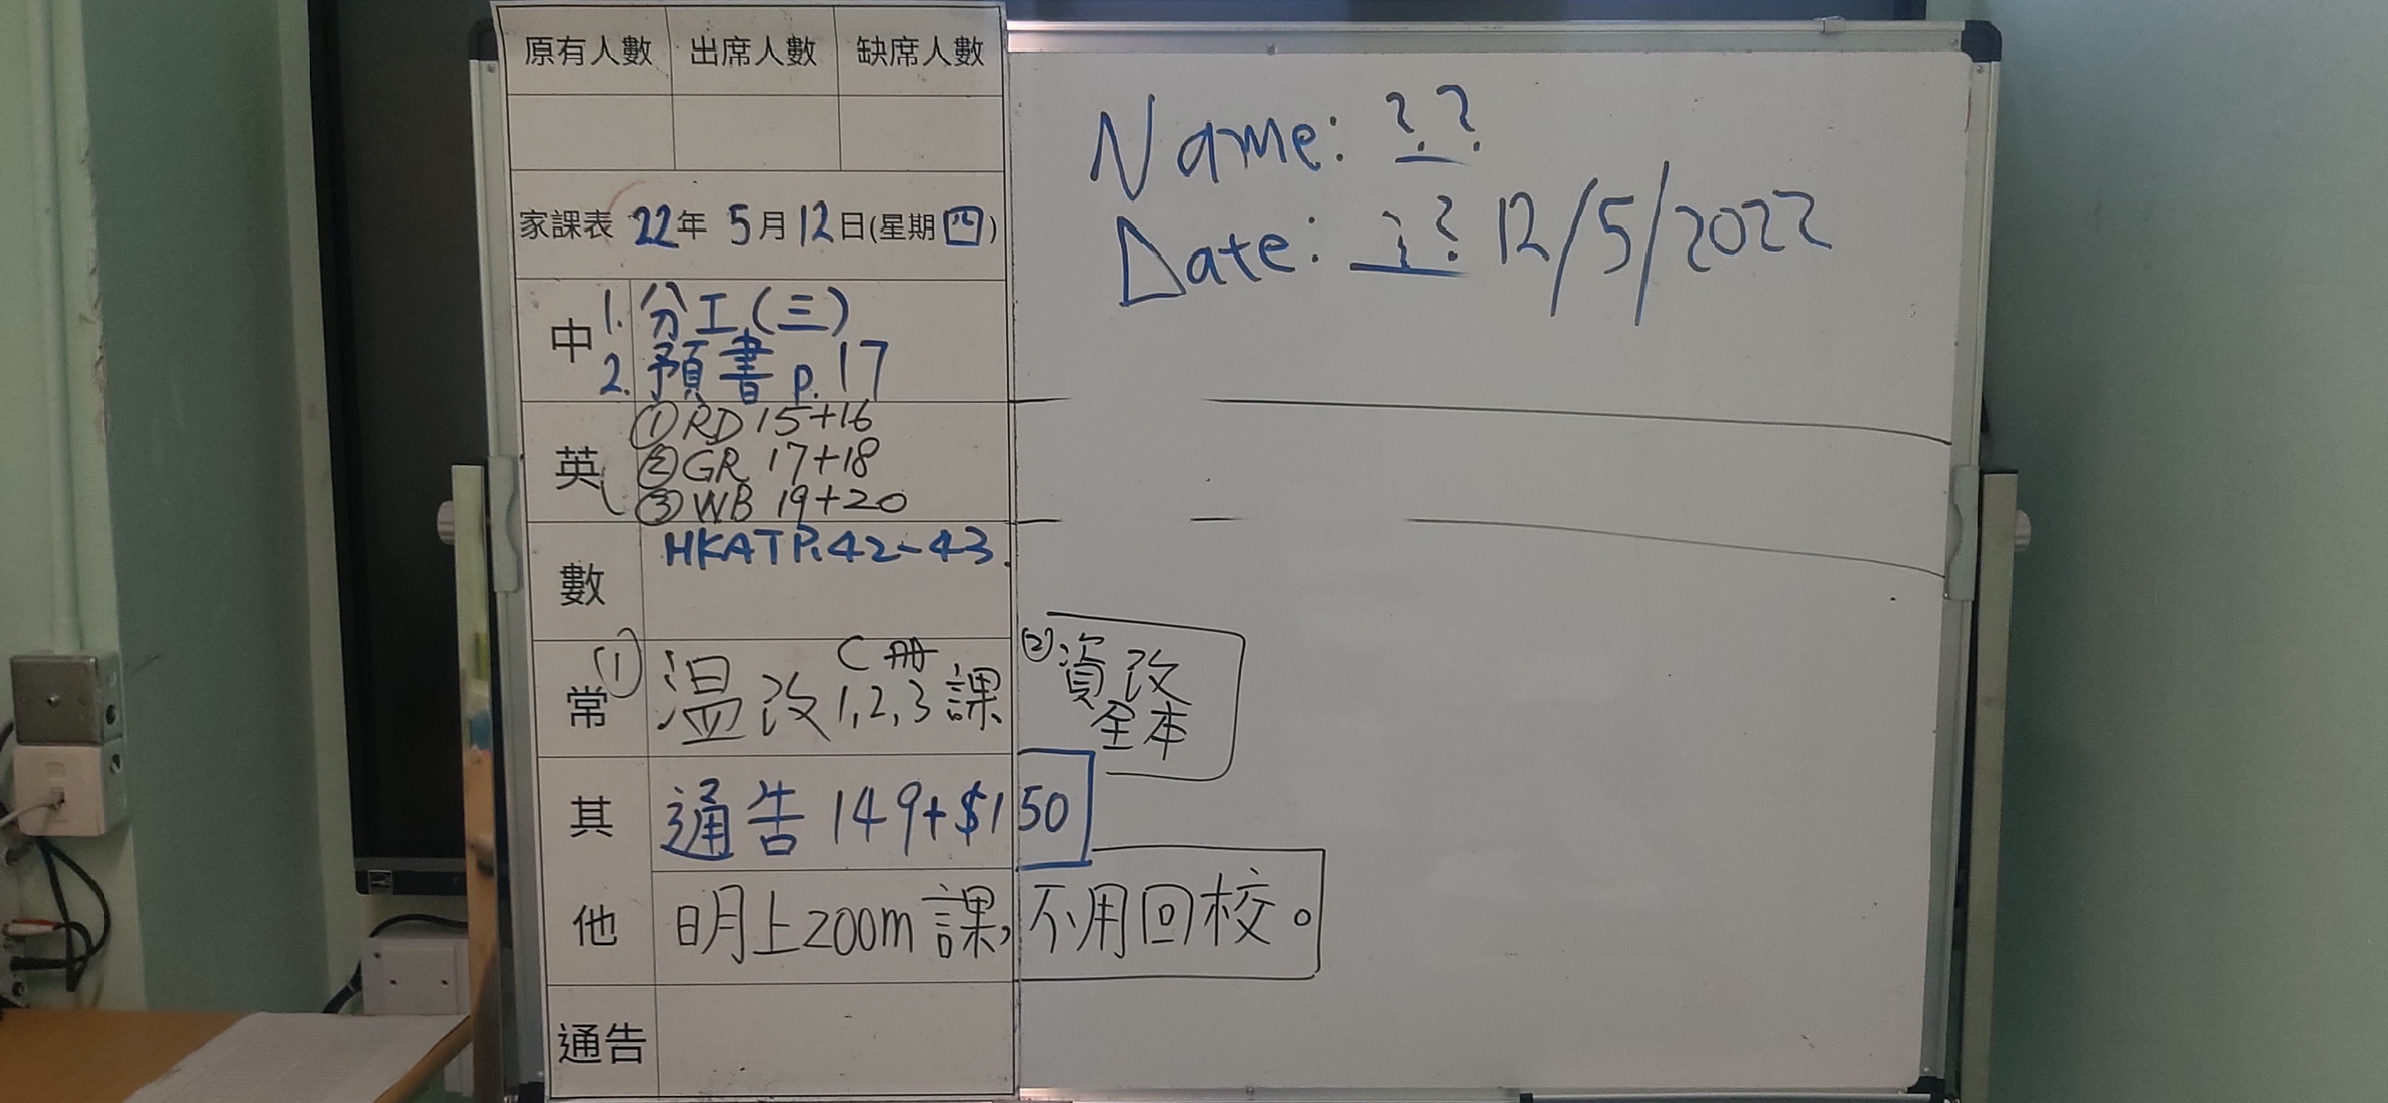 原有人數 出席人數 缺席人數
家課表 22年 5月12日(星期四)
中 1. 分工(三)
2. 預書 p.17
英 ① RD 15+16
② GR 17+18
③ WB 19+20
數 HKAT P.42-43.
常 (1) 温改 C冊 1,2,3課
(2) 資改
全本
其他
通告 149+$150
明上200m課,不用回校。
通告
Name: ??
Date: ?? 12/5/2022